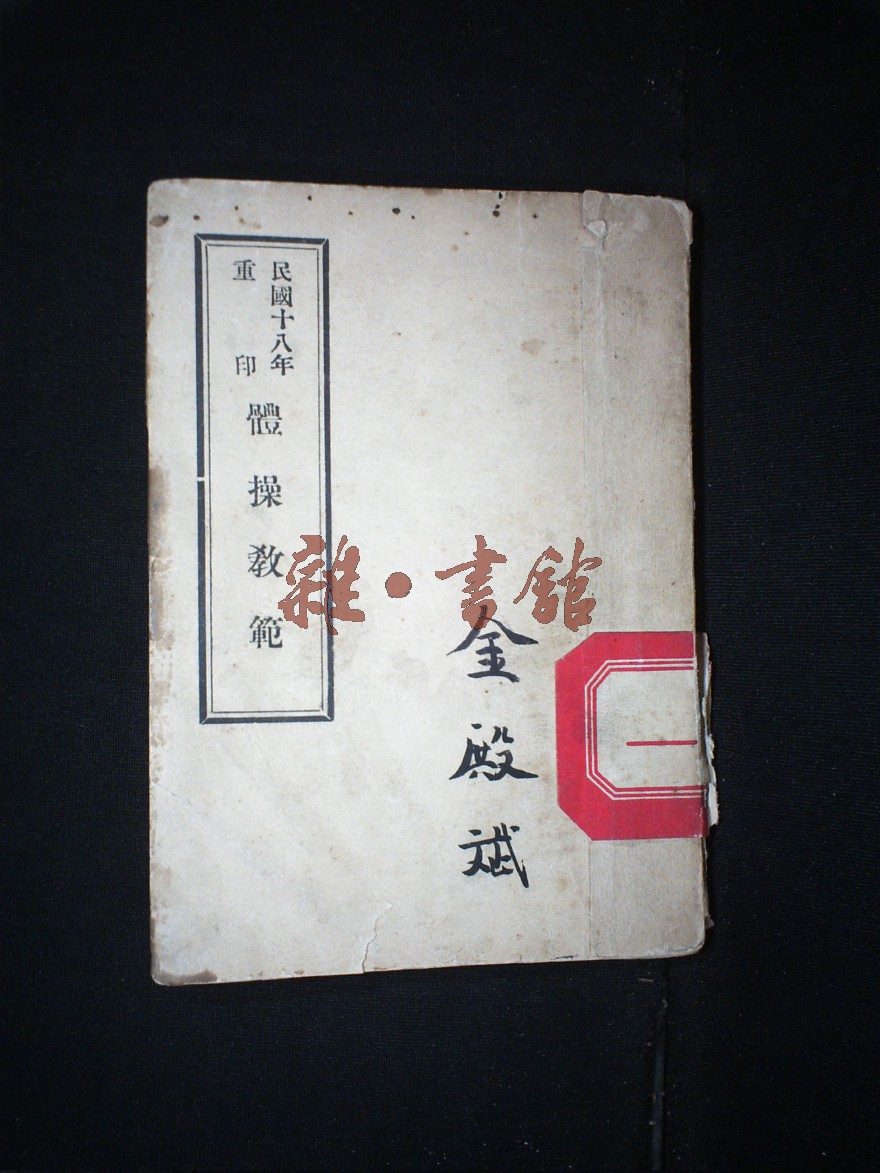 民國十八年
重印
體操教範
金殿斌
雜·書館